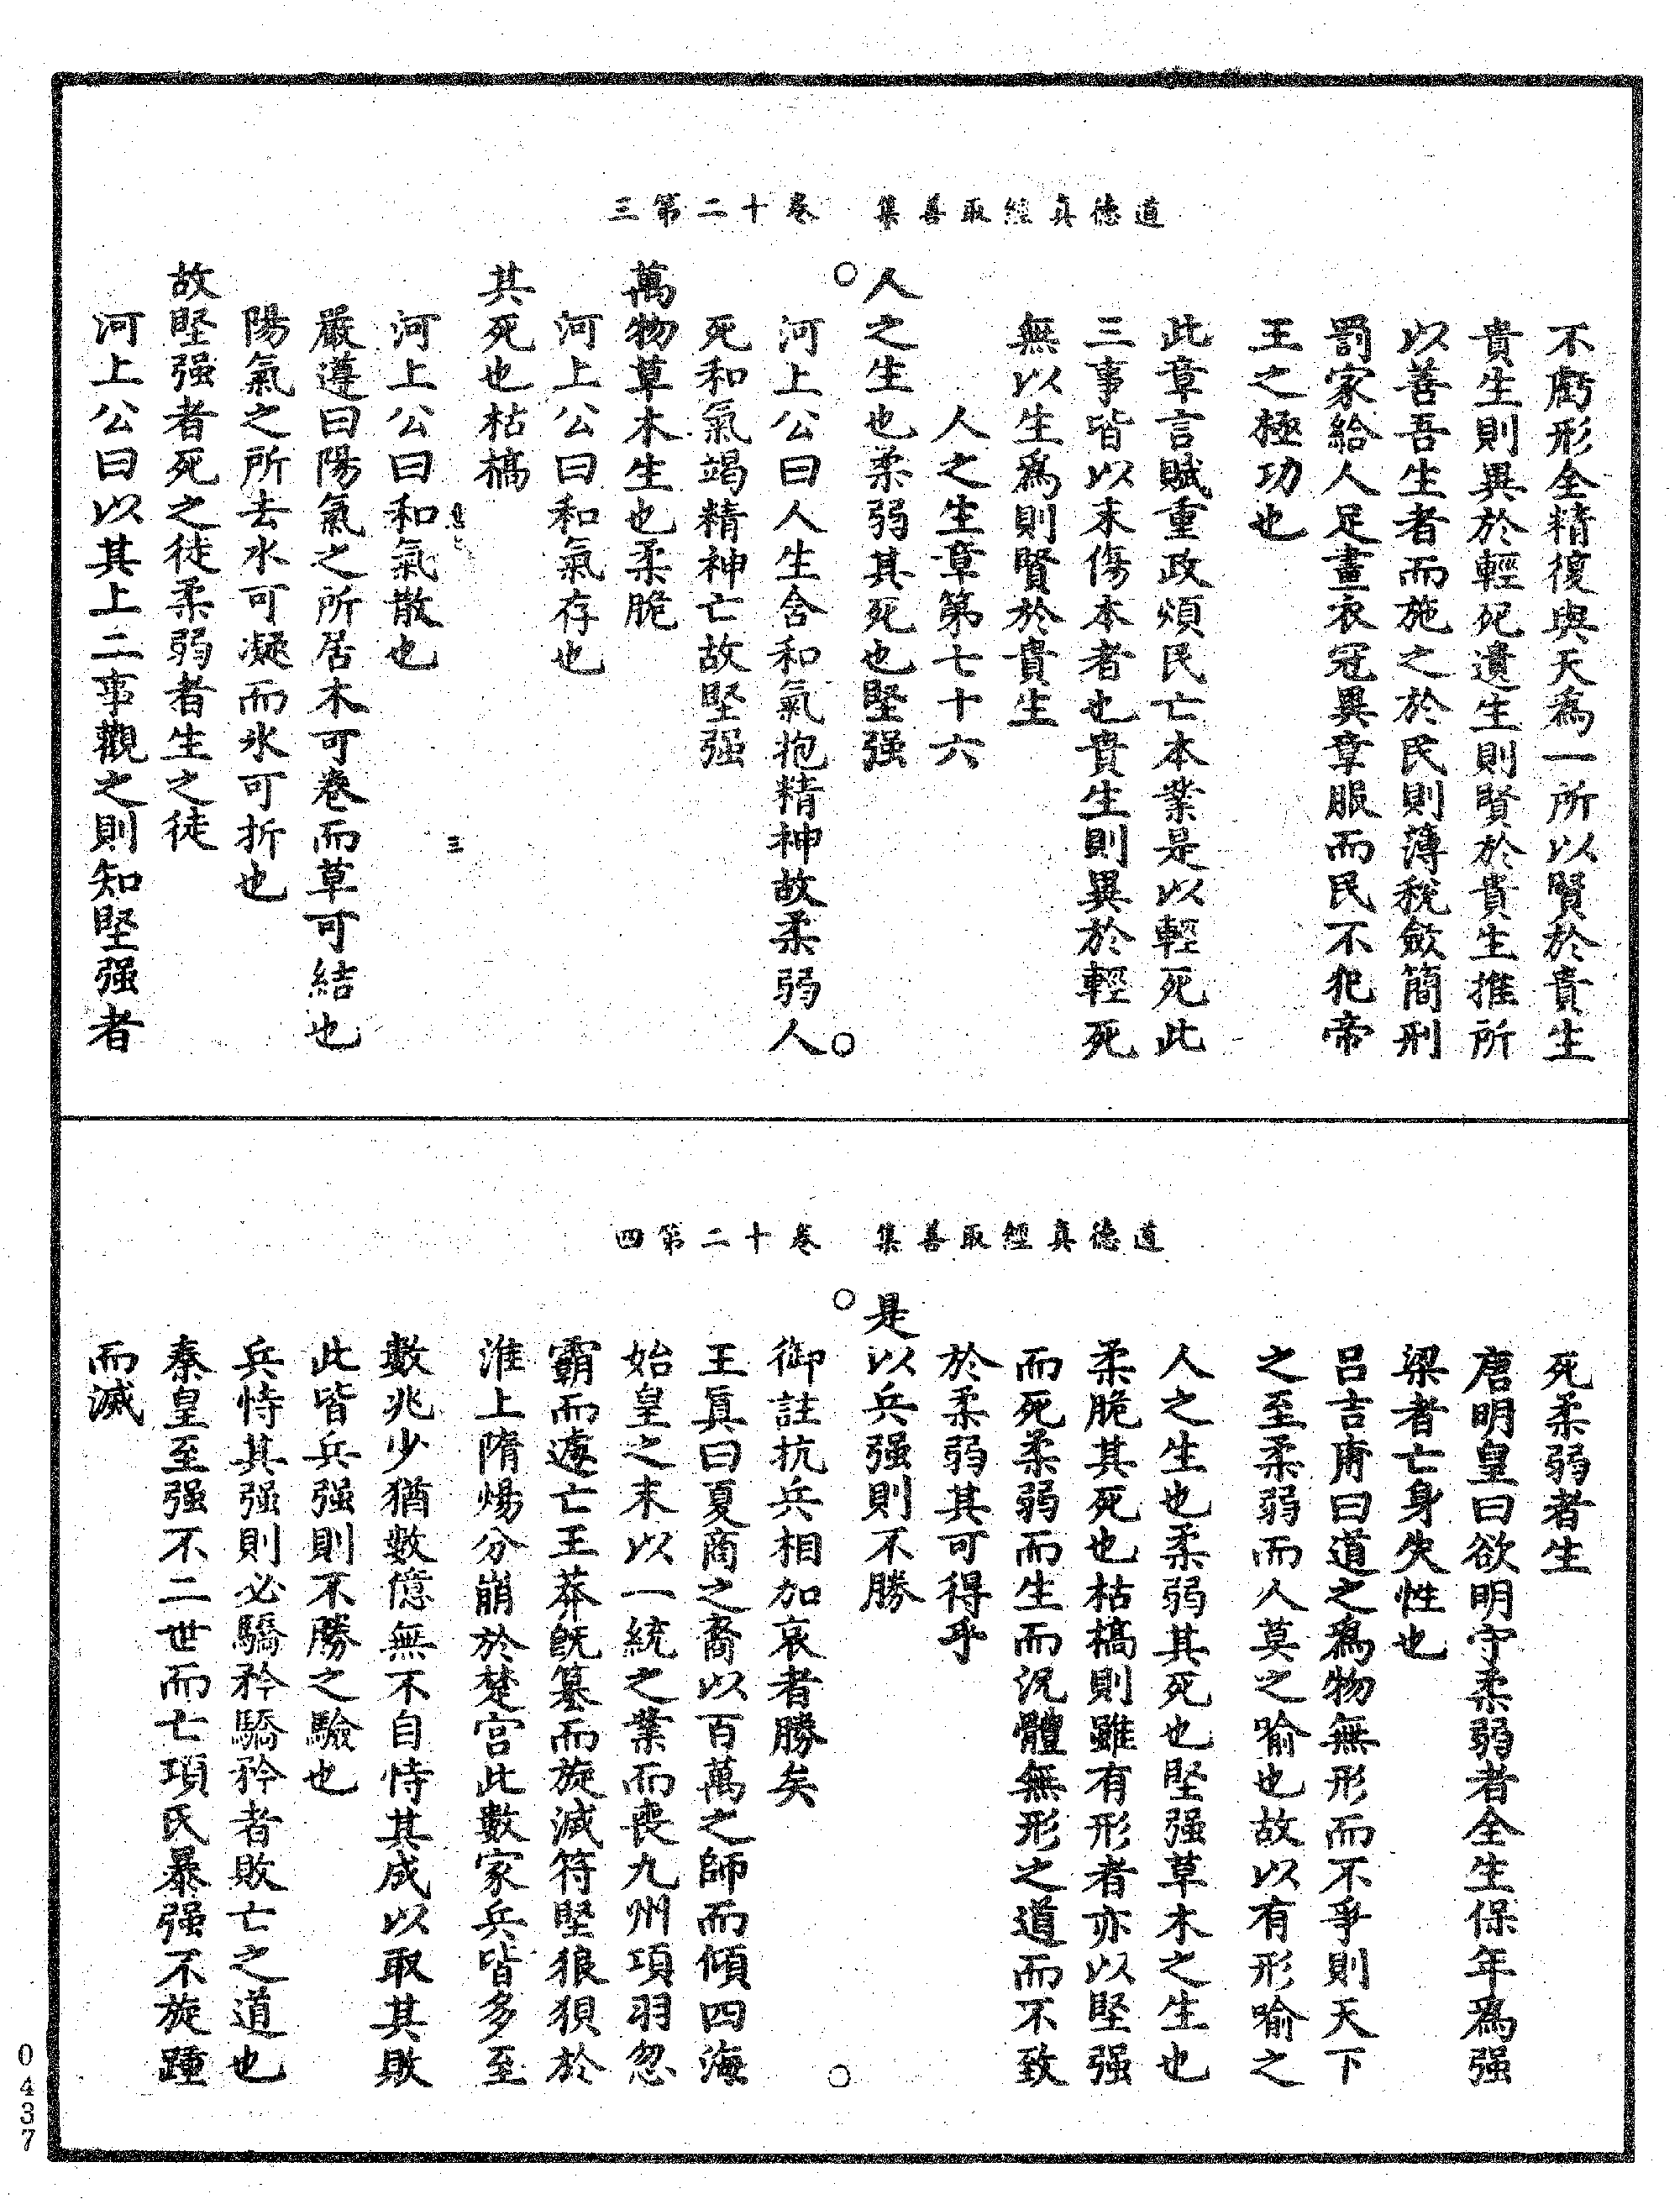 道德真經取善集　卷十二第三
不虧形全精復與天爲一所以賢於貴生
貴生則異於輕死遺生則賢於貴生推所
以善吾生者而施之於民則薄稅斂簡刑
罰家給人足畫衣冠異章服而民不犯帝
王之極功也
此章言賦重政煩民亡本業是以輕死此
三事皆以末傷本者也貴生則異於輕死
無以生爲則賢於貴生
人之生章第七十六
人之生也柔弱其死也堅强
河上公曰人生含和氣抱精神故柔弱人
死和氣竭精神亡故堅强
萬物草木生也柔脆
河上公曰和氣存也
其死也枯槁
三
河上公曰和氣散也
嚴遵曰陽氣之所居木可卷而草可結也
陽氣之所去水可凝而氷可折也
故堅强者死之徒柔弱者生之徒
河上公曰以其上二事觀之則知堅强者
道德真經取善集　卷十二第四
死柔弱者生
唐明皇曰欲明守柔弱者全生保年爲强
梁者亡身失性也
呂吉甫曰道之爲物無形而不爭則天下
之至柔弱而人莫之喻也故以有形喻之
人之生也柔弱其死也堅强草木之生也
柔脆其死也枯槁則雖有形者亦以堅强
而死柔弱而生而況體無形之道而不致
於柔弱其可得乎
是以兵强則不勝
御註抗兵相加哀者勝矣
王眞曰夏商之裔以百萬之師而傾四海
始皇之末以一統之業而喪九州項羽忽
霸而遽亡王莽旣篡而旋滅符堅狼狽於
淮上隋煬分崩於楚宮此數家兵皆多至
數兆少猶數億無不自恃其成以取其敗
此皆兵强則不勝之驗也
兵恃其强則必驕矜驕矜者敗亡之道也
秦皇至强不二世而亡項氏暴强不旋踵
而滅
0437